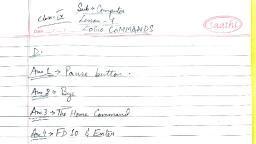 Class-IX Sub-Computer
Lesson-4
LOGO COMMANDS
Date
saathi
D.
Ans 1 → Pause button.
Ans 2 → Bye
Ans 3 → The Home Command
Ans 4 → FD 10 & Enter